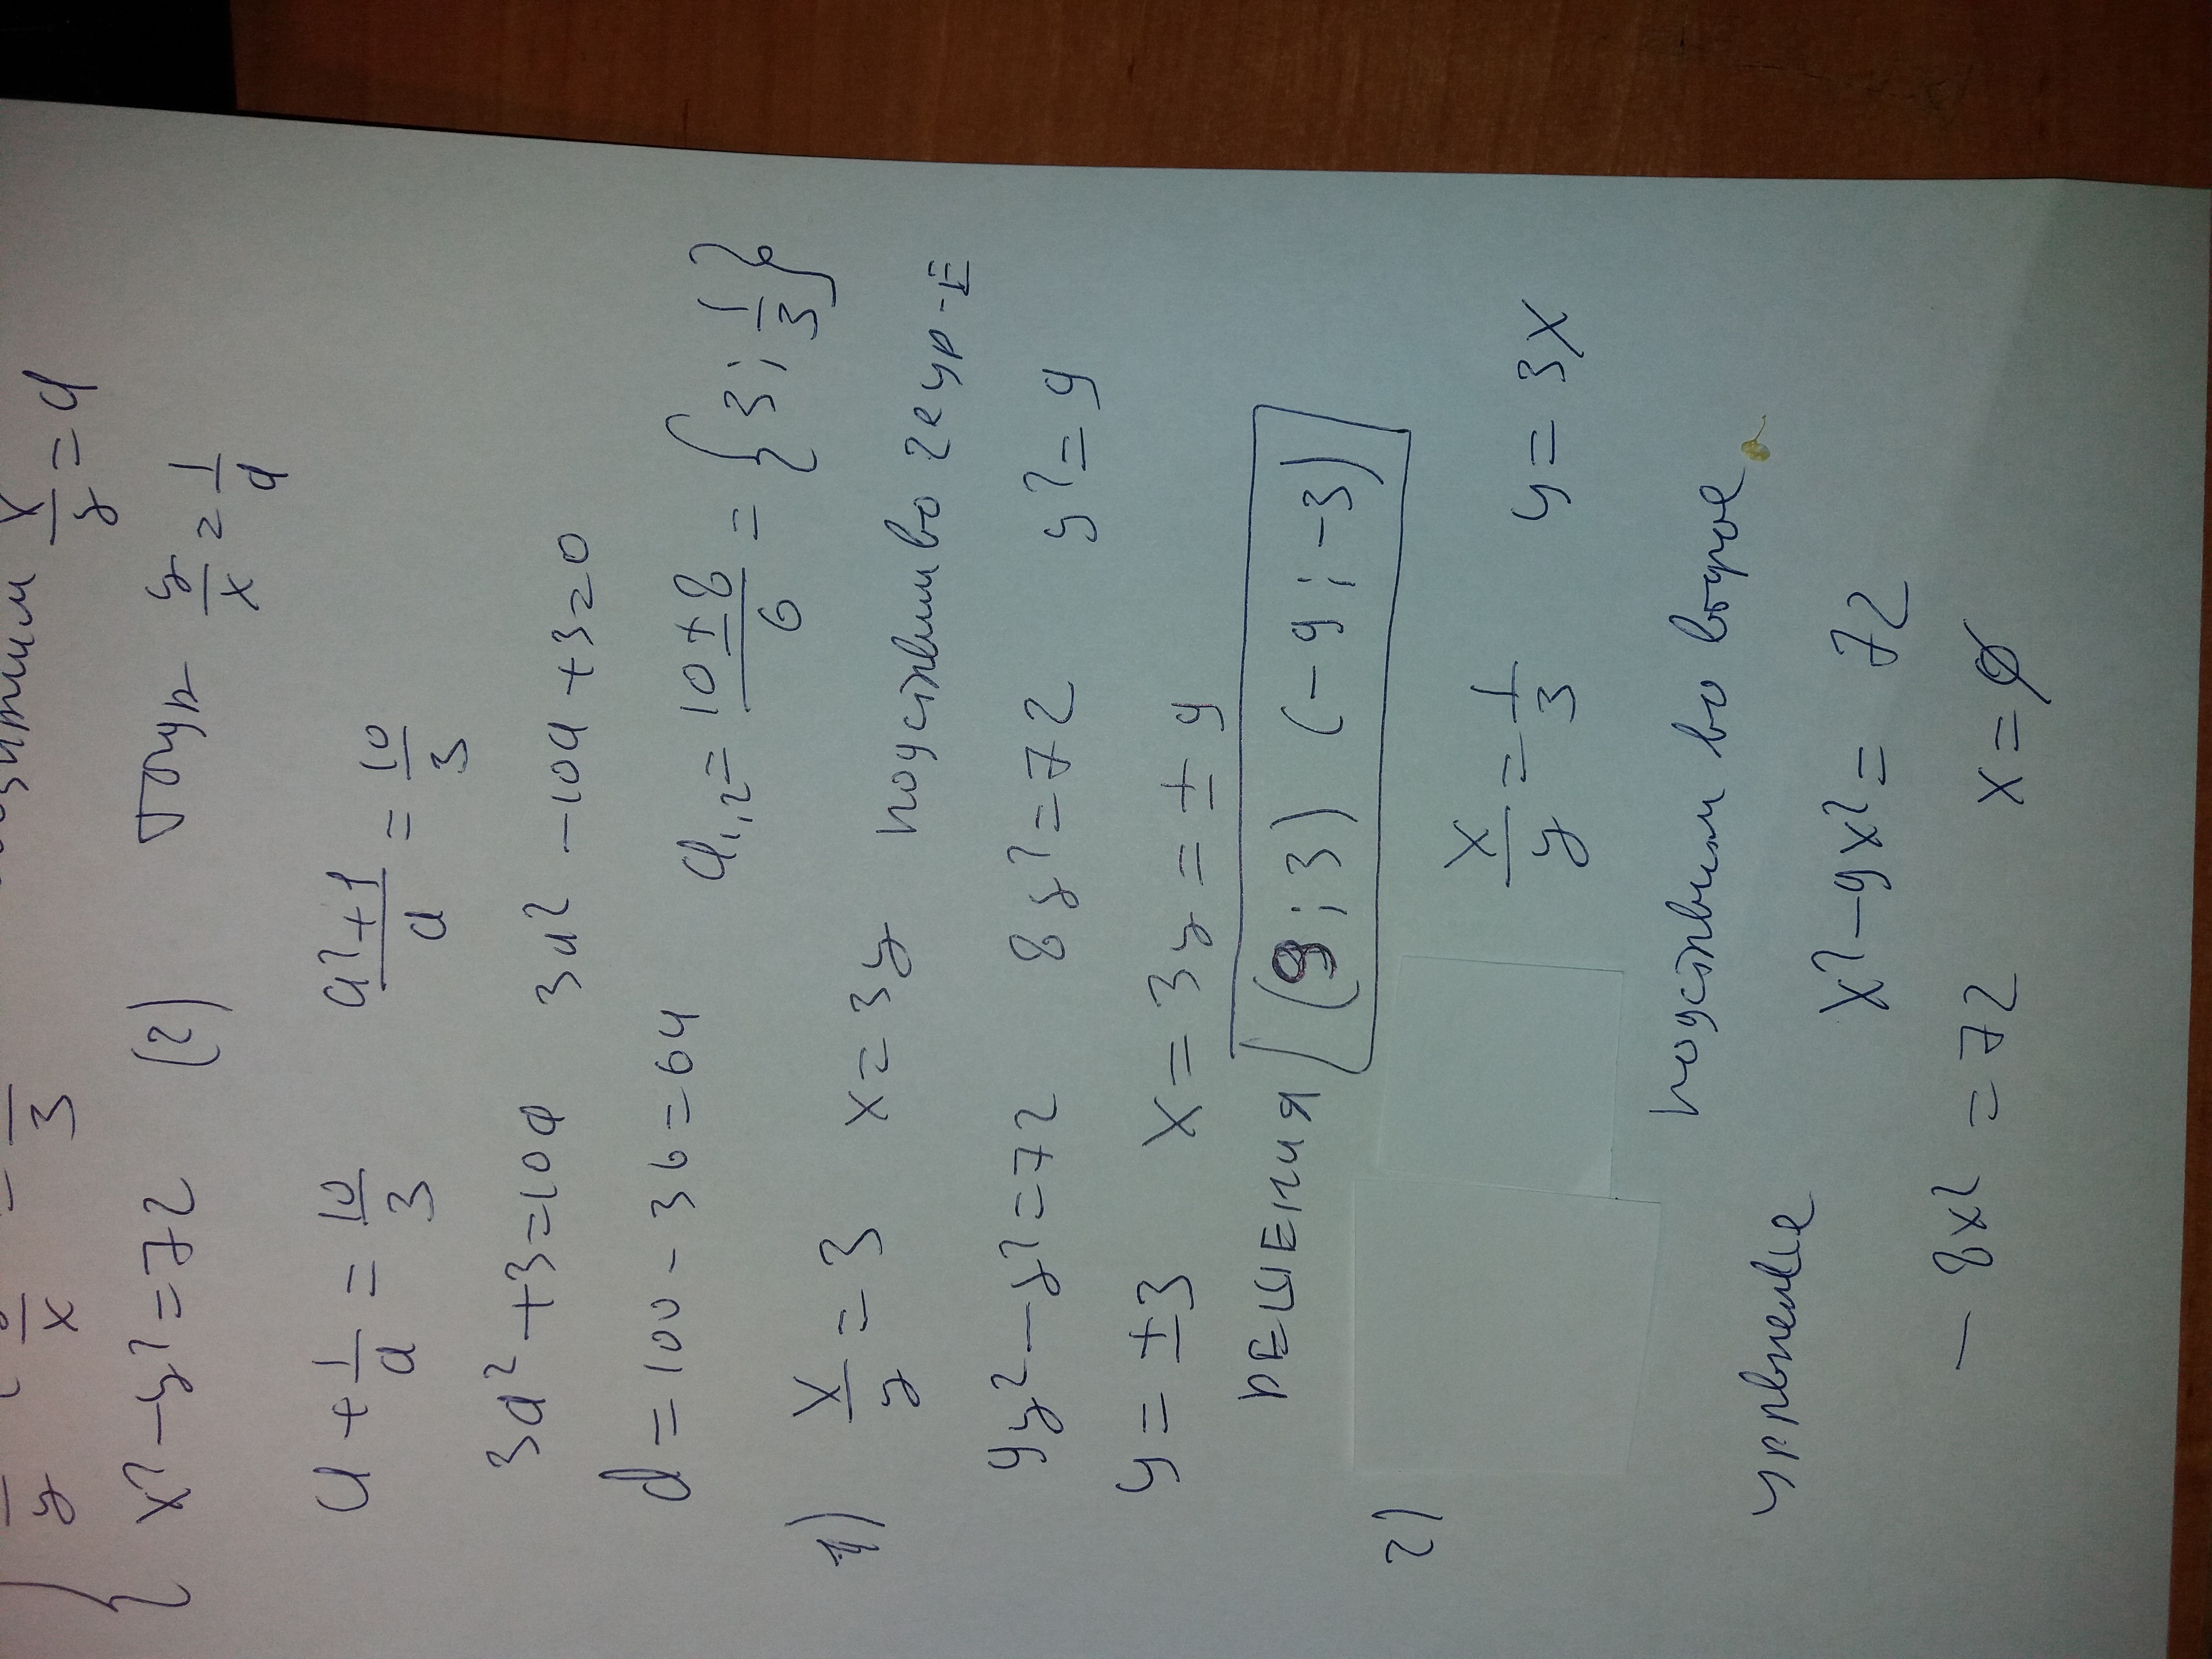 x/y + y/x = /3 обозначим x/y = a
{ x² - y² = 72 (2) Тогда y/x = 1/a
a + 1/a = 10/3 a²+1/a = 10/3
3a² + 3 = 10a 3a² - 10a + 3 = 0
d = 100 - 36 = 64 a1,2 = 10±8/6 = {3; 1/3}
1) x/y = 3 x = 3y подставим во 2 еур-е
9y² - y² = 72 8y² = 72 y² = 9
y = ±3 x = 3y = ±9
РЕШЕНИЯ (9; 3) (-9; -3)
2) x/y = 1/3 y = 3x
подставим во второе
урвнение x² - 9x² = 72
- 8x² = 72 x = ∅